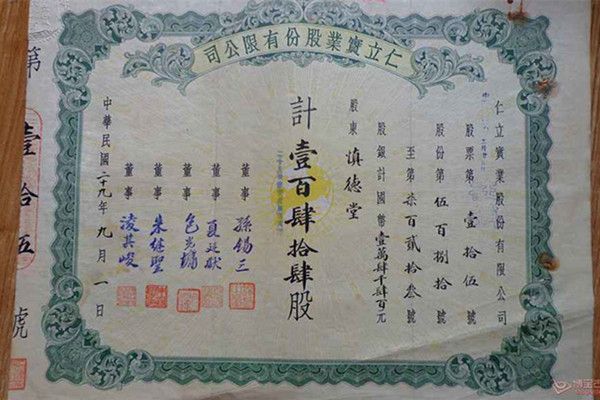 仁立實業股份有限公司
仁立實業股份有限公司
股票第壹拾伍號
股份第伍百捌拾號
至第柒百貳拾叁號
股銀計國幣壹萬肆千肆百元
股東 慎德堂
計壹百肆拾肆股
董事 孫錫三
董事 夏廷獻
董事 包光鏞
董事 朱繼聖
董事 凌其峻
中華民國二十九年九月一日
第壹拾伍號